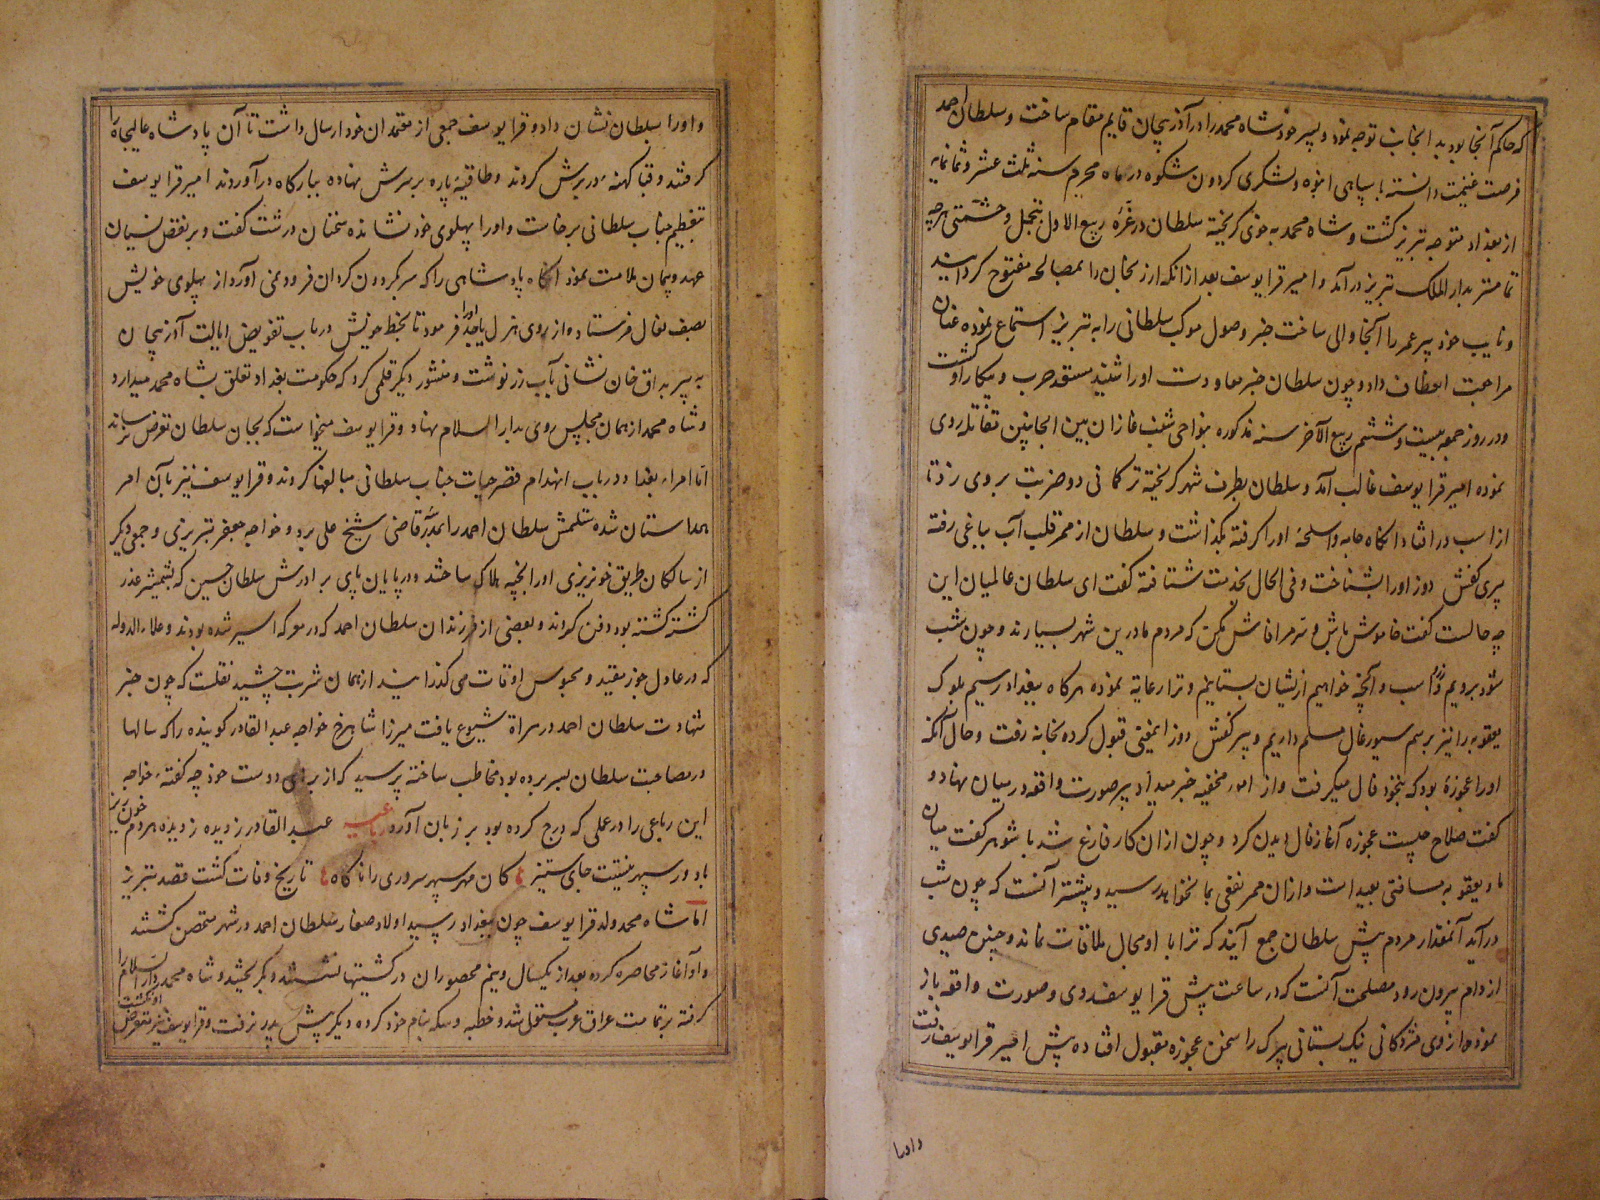 که حاکم آنجا بود بدانجانب توجه نمود و پسر خود شاه محمد را در آذربیجان قایم مقام ساخت و سلطان احمد
فرصت غنیمت دانسته با سپاهی انبوه و لشکری گردون شکوه در ماه محرم سنه ثلث عشر و ثمانمایه
از بغداد متوجه تبریز کشت و شاه محمد به خوی کریخته سلطان در غره ربیع الاول بتجمل و حشمتی هرچه
تمامتر بدار الملک تبریز درآمد و امیر قرا یوسف بعد از آنکه ارزنجان را بمصالحه مفتوح کردانید
و نایب خود پیر عمر را آنجا والی ساخت خبر وصول موکب سلطانی را به تبریز استماع نموده عنان
مراجعت انعطاف داد و چون سلطان خبر معاودت او را شنید مستعد حرب و پیکار او کشت
و در روز جمعه بیست و ششم ربیع الآخر سنه مذکوره بنواحی شنب غازان بین الجانبین مقاتله روی
نموده امیر قرا یوسف غالب آمد و سلطان بطرف شهر کریخته ترکمانی دو ضربت بر وی زد تا
از اسب در افتاد آنکاه جامه و اسلحهٔ او را کرفته بگذاشت و سلطان از ممر قلب آب بباغی رفته
پیری کفش دوز او را بشناخت و فی الحال بخدمت شتافته کفت ای سلطان عالمیان این
چه حالست کفت خاموش باش و سر مرا فاش مکن که مردم ما درین شهر بسیارند و چون شب
شود برویم و اسب و آنچه خواهیم ازیشان بستانیم و ترا رعایة نموده هرکاه ببغداد رسیم بلوک
یعقوبه را نیز برسم سیورغال مسلم داریم و پیر کفش دوز اینمعنی قبول کرده بخانه رفت و حال آنکه
او را عجوزهٔ بود که بنخود فال میکرفت و از امور مخفیه خبر میداد پیر صورت واقعه در میان نهاد و
کفت صلاح چیست عجوزه آغاز فال دیدن کرد و چون از ان کار فارغ شد با شوهر کفت میان
ما و یعقوبه مسافتی بعید است و ازان ممر نفعی بما نخواهد رسید و بیشتر آنست که چون شب
درآید آنمقدار مردم پیش سلطان جمع آیند که ترا با او مجال ملاقات نماند و چنین صیدی
از دام بیرون رود مصلحت آنست که در ساعت پیش قرا یوسف روی و صورت واقعه باز
نموده از وی مژدکانی نیک بستانی پیرک را سخن عجوزه مقبول افتاده پیش امیر قرا یوسف رفت
و او را
و او را بسلطان نشان داد و قرا یوسف جمعی از معتمدان خود ارسال داشت تا آن پادشاه عالیجاه را
کرفتند و قبا کهنه در برش کردند و طاقیهٔ پاره بر سرش نهاده ببارکاه درآوردند امیر قرا یوسف
بتعظیم جناب سلطانی برخاست و او را پهلوی خود نشانده سخنان درشت کفت و بر نقض نسیان
عهد و پیمان ملامت نمود آنکاه پادشاهی را که سر بکردون کردان فرود نمی آورد از پهلوی خویش
بصف نعال فرستاد و از روی هزل یا جد او را فرمود تا بخط خویش در باب تفویض ایالت آذربیجان
به پیر بداق خان نشانی بآب زر نوشت و منشور دیکر قلمی کرد که حکومت بغداد تعلق بشاه محمد میدارد
و شاه محمد از همان مجلس روی بدار السلام نهاد و قرا یوسف میخواست که بجان سلطان تعرض نرساند
اما امراء بغداد در باب انهدام قصر حیات جناب سلطانی مبالغها کردند و قرا یوسف نیز بآن امر
همداستان شده سلطان احمد را بمدرسهٔ قاضی شیخ علی برد و خواجه جعفر تبریزی و جمعی دیکر
از سالکان طریق خونریزی او را بخبه هلاک ساختند و در پایان پای برادرش سلطان حسین که بشمشیر غدر
کشته کشته بود دفن کردند و بعضی از فرزندان سلطان احمد که در معرکه اسیر شده بودند و علاء الدوله
که در عادل جوز مقید و محبوس اوقات می کذرانید از همان شربت چشید نقلست که چون خبر
شهادت سلطان احمد در هراة شیوع یافت میرزا شاهرخ خواجه عبد القادر کوینده را که سالها
در مصاحبت سلطان بسر برده بود مخاطب ساخته پرسید که از برای دوست خود چه کفتهٔ خواجه
این رباعی را در عملی که درج کرده بود بر زبان آورد رباعیه عبد القادر ز دیده هر دم خون ریز
با دور سپهر نیست جای ستیز کان مهر سپهر سروری را ناکاه تاریخ وفات کشت قصد تبریز
اما شاه محمد ولد قرا یوسف چون ببغداد رسید اولاد صغار سلطان احمد در شهر متحصن کشتند
و او آغاز محاصره کرده بعد از یکسال و نیم محصوران در کشتیها نشستند و بگریختند و شاه محمد دار السلام را
کرفته بر تمامت عراق عرب مستولی شد و خطبه و سکه بنام خود کرده دیکر پیش پدر نرفت و قرا یوسف نیز متعرض او نکشت